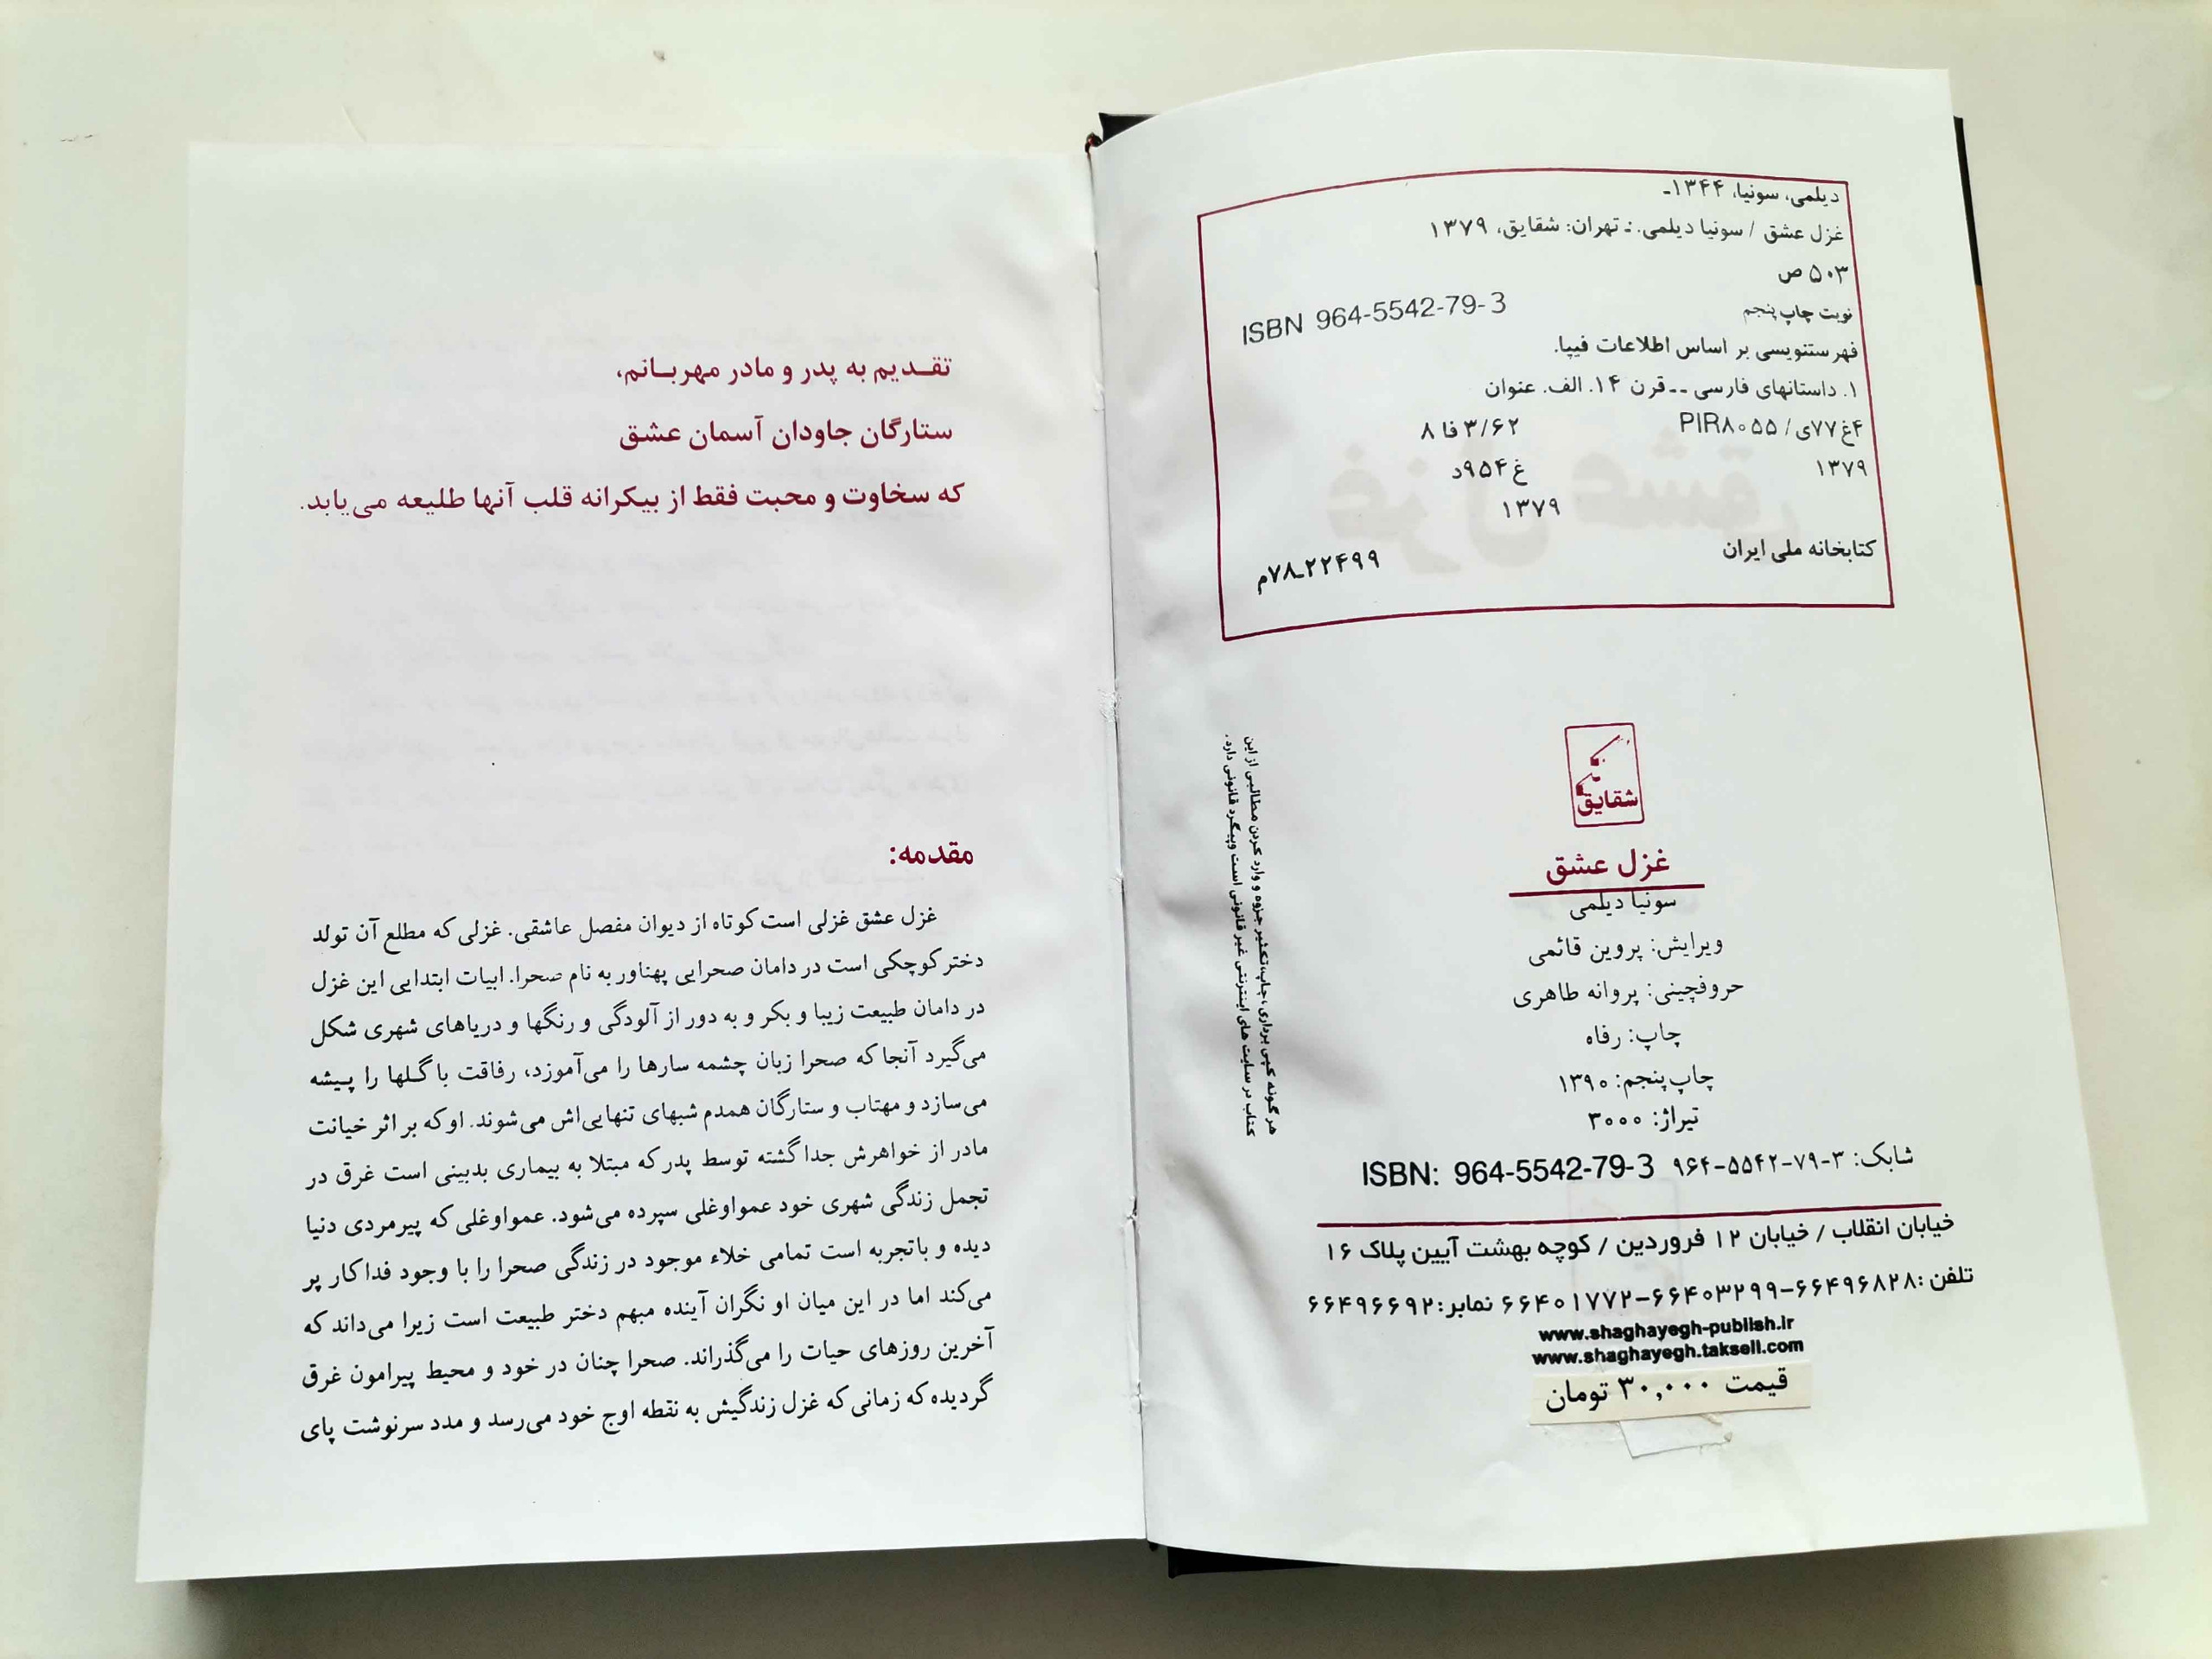 دیلمی، سونیا، ۱۳۴۴ـ
غزل عشق / سونیا دیلمی. ـ تهران: شقایق، ۱۳۷۹
۵۰۳ ص
ISBN 964-5542-79-3
نوبت چاپ پنجم
فهرستنویسی بر اساس اطلاعات فیپا.
۱. داستانهای فارسی -- قرن ۱۴. الف. عنوان
۴غ۷۷ی/ PIR۸۰۵۵ ۳/۶۲ فا ۸
۱۳۷۹ غ۹۵۴د
۱۳۷۹
کتابخانه ملی ایران ۲۲۴۹۹ـ۷۸م
هر گونه کپی برداری،چاپ،تکثیر،جزوه و وارد کردن مطالبی از این
کتاب در سایت های اینترنتی غیر قانونی است وپیگرد قانونی دارد.
شقایق
غزل عشق
سونیا دیلمی
ویرایش: پروین قائمی
حروفچینی: پروانه طاهری
چاپ: رفاه
چاپ پنجم: ۱۳۹۰
تیراژ: ۳۰۰۰
شابک: ۳-۷۹-۵۵۴۲-۹۶۴ ISBN: 964-5542-79-3
خیابان انقلاب / خیابان ۱۲ فروردین / کوچه بهشت آیین پلاک ۱۶
تلفن :۶۶۴۹۶۸۲۸-۶۶۴۰۳۲۹۹-۶۶۴۰۱۷۷۲ نمابر:۶۶۴۹۶۶۹۲
www.shaghayegh-publish.ir
www.shaghayegh.taksell.com
قیمت ۳۰,۰۰۰ تومان
تقـدیم به پدر و مادر مهربـانم،
ستارگان جاودان آسمان عشق
که سخاوت و محبت فقط از بیکرانه قلب آنها طلیعه می‌یابد.
مقدمه:
غزل عشق غزلی است کوتاه از دیوان مفصل عاشقی. غزلی که مطلع آن تولد
دختر کوچکی است در دامان صحرایی پهناور به نام صحرا. ابیات ابتدایی این غزل
در دامان طبیعت زیبا و بکر و به دور از آلودگی و رنگها و دریاهای شهری شکل
می‌گیرد آنجا که صحرا زبان چشمه سارها را می‌آموزد، رفاقت با گـلها را پـیشه
می‌سازد و مهتاب و ستارگان همدم شبهای تنهایی‌اش می‌شوند. او که بر اثر خیانت
مادر از خواهرش جدا گشته توسط پدر که مبتلا به بیماری بدبینی است غرق در
تجمل زندگی شهری خود عمواوغلی سپرده می‌شود. عمواوغلی که پیرمردی دنیا
دیده و باتجربه است تمامی خلاء موجود در زندگی صحرا را با وجود فداکار پر
می‌کند اما در این میان او نگران آینده مبهم دختر طبیعت است زیرا می‌داند که
آخرین روزهای حیات را می‌گذراند. صحرا چنان در خود و محیط پیرامون غرق
گردیده که زمانی که غزل زندگیش به نقطه اوج خود می‌رسد و مدد سرنوشت پای